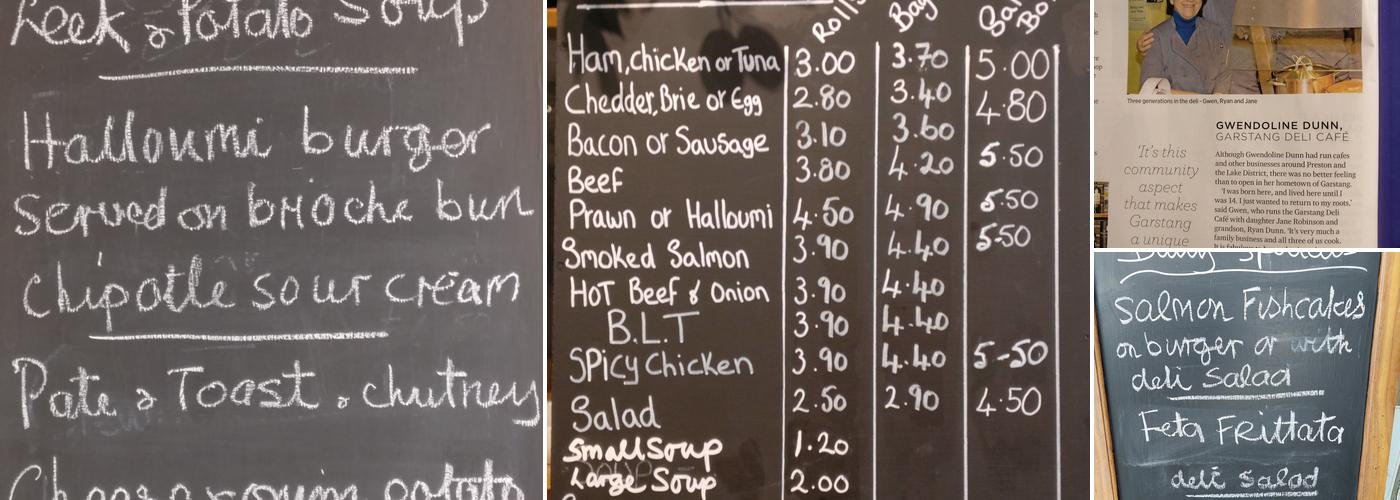 Leek & Potato Soup
Halloumi burger
Served on brioche bun
Chipotle sour cream
Pate & Toast & chutney
Rolls
Ham, chicken or Tuna 3.00 3.70 5.00
Chedder, Brie or Egg 2.80 3.40 4.80
Bacon or Sausage 3.10 3.60
Beef 3.80 4.20 5.50
Prawn or Halloumi 4.50 4.90 5.50
Smoked Salmon 3.90 4.40 5.50
HoT Beef & Onion 3.90 4.40
B.L.T 3.90 4.40
SPicy Chicken 3.90 4.40 5-50
Salad 2.50 2.90 4.50
Small Soup 1.20
Large Soup 2.00
Three generations in the deli - Gwen, Ryan and Jane
GWENDOLINE DUNN,
GARSTANG DELI CAFÉ
'It's this
community
aspect
that makes
Garstang
a unique
Although Gwendoline Dunn had run cafes
and other businesses around Preston and
the Lake District, there was no better feeling
than to open in her hometown of Garstang.
'I was born here, and lived here until I
was 14. I just wanted to return to my roots.'
said Gwen, who runs the Garstang Deli
Café with daughter Jane Robinson and
grandson, Ryan Dunn. 'It's very much a
family business and all three of us cook.
Salmon Fishcakes
on burger or with
deli Salad
Feta Frittata
deli Salad